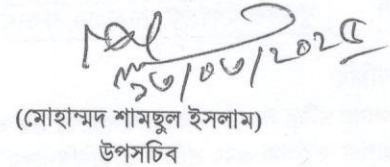 ১৩/০৩/২০২৫
(মোহাম্মদ শামছুল ইসলাম)
উপসচিব